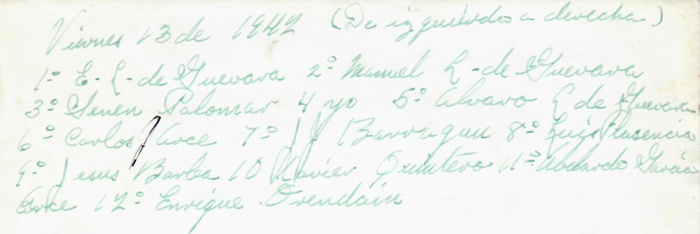 Viernes 13 de 1942 (De izquierdo a derecha)
1º E. L. de Guevara 2º Manuel L. de Guevara
3º Senen Palomar 4 yo 5º Alvaro L de Guevara
6º Carlos Arce 7º Barragan 8º Luis Plasencia
9º Jesus Barba 10 Xavier Quintero 11º Abelardo García
Arce 12º Enrique Orendáin